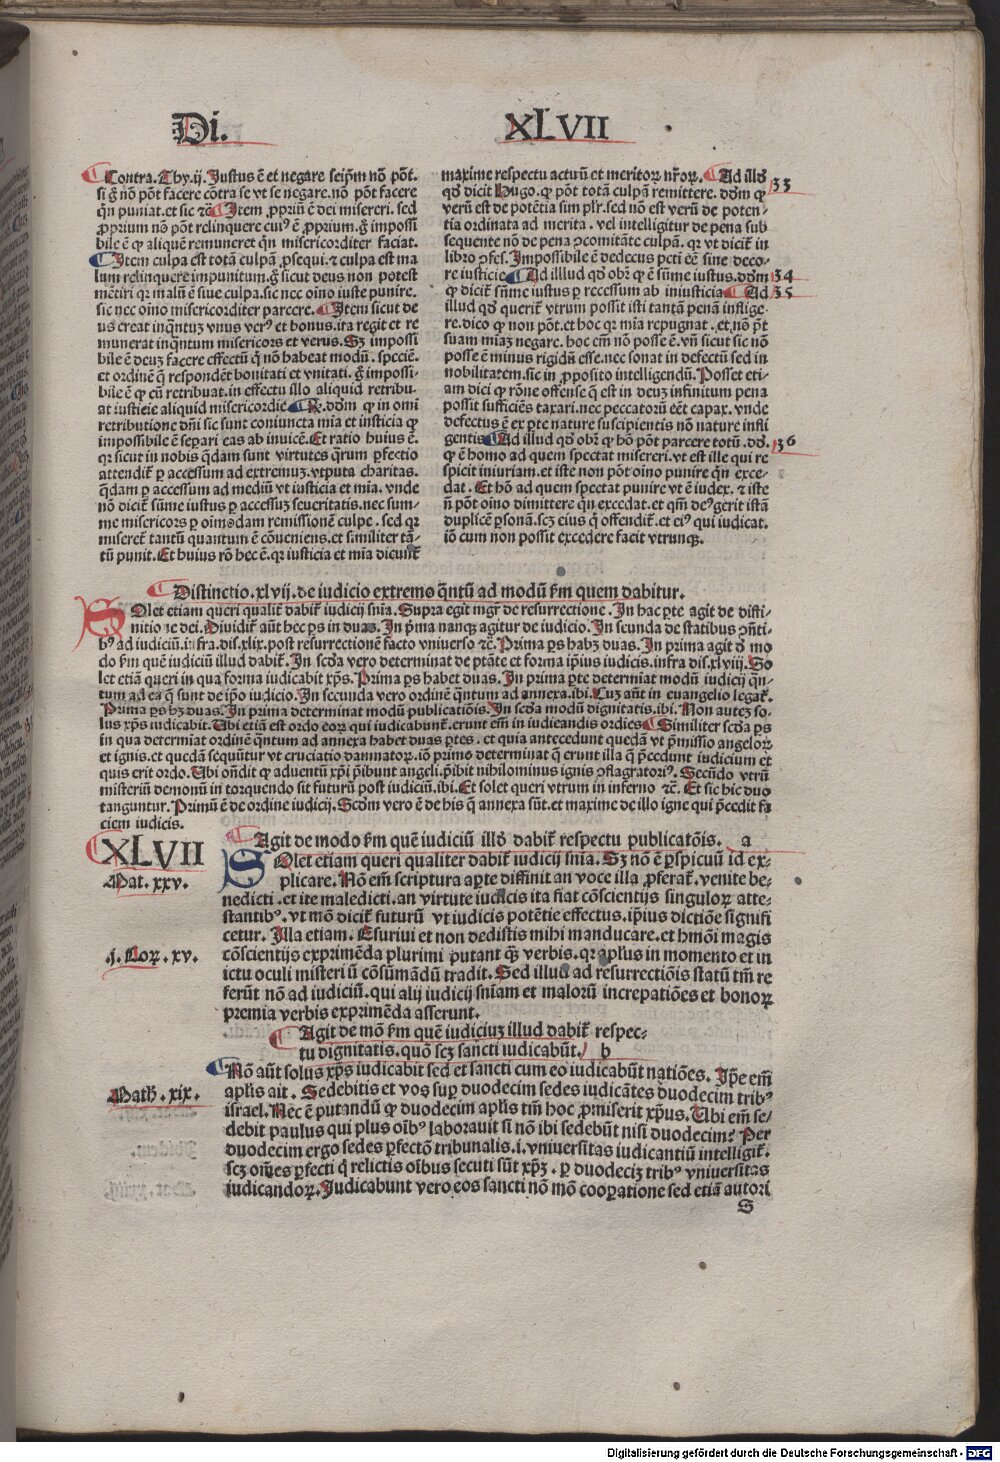 Di. XLVII
Contra. Thy. ij. Iustus ē et negare seipm̄ nō pōt.
si ḡ nō pōt facere cōtra se vt se negare. nō pōt facere
qn̄ puniat. et sic ⁊c̄ Item ꝓpriū ē dei misereri. sed
ꝓprium nō pōt relinquere cuiꝰ ē ꝓprium. ḡ impossi
bile ē ꝙ aliquē remuneret qn̄ misericorditer faciat.
Item culpa est totā culpā ꝓsequi. ⁊ culpa est ma
lum relinquere impunitum. ḡ sicut deus non potest
mētiri qꝛ malū ē siue culpa. sic nec oīno iuste punire.
sic nec oīno misericorditer parcere. Item sicut de
us creat inqntuꝫ vnus verꝰ et bonus. ita regit et re
munerat inqntum misericors et verus. Sꝫ impossi
bile ē deuꝫ facere effectū q̄ nō habeat modū. speciē.
et ordinē q̄ respondēt bonitati et vnitati. ḡ impossi-
bile ē ꝙ cū retribuat. in effectu illo aliquid retribu-
at iusticie aliquid misericordie Rꝫ. dōm ꝙ in omī
retributione dn̄i sic sunt coniuncta mīa et iusticia ꝙ
impossibile ē separi eas ab inuicē. Et ratio huius ē.
qꝛ sicut in nobis q̄dam sunt virtutes q̄rum ꝑfectio
attendit᷑ ꝑ accessum ad extremuꝫ. vtputa charitas.
q̄dam ꝑ accessum ad mediū vt iusticia et mīa. vnde
nō dicit᷑ sūme iustus ꝑ accessuꝫ seueritatis. nec sum-
me misericors ꝑ oīmodam remissionē culpe. sed qꝛ
miseret᷑ tantū quantum ē cōueniens. et similiter tā-
tū punit. Et huius rō hec ē. qꝛ iusticia et mīa dicunt᷑
maxime respectu actuū et meritoꝝ nr̄oꝝ. Ad illd̄
qd̄ dicit Hugo. ꝙ pōt totā culpā remittere. dōm ꝙ 33
verū est de potētia sim plr̄. sed nō est verū de poten-
tia ordinata ad merita. vel intelligitur de pena sub
sequente nō de pena ꝯcomitāte culpā. qꝛ vt dicit᷑ in
libro ꝯfes. Impossibile ē dedecus pcti eē sine deco-
re iusticie Ad illud qd̄ obr̄ ꝙ ē sūme iustus. dōm 34
ꝙ dicit᷑ sūme iustus ꝑ recessum ab iniusticia Ad 35
illud qd̄ querit᷑ vtrum possit isti tantā penā inflige-
re. dico ꝙ non pōt. et hoc qꝛ mīa repugnat. et nō pōt
suam mīaꝫ negare. hoc em̄ nō posse ē. vn̄ sicut sic nō
posse ē minus rigidū esse. nec sonat in defectū sed in
nobilitatem. sic in ꝓposito intelligendū. Posset eti-
am dici ꝙ rōne offense q̄ est in deuꝫ infinitum pena
possit sufficiēs taxari. nec peccatorū eēt capax. vnde
defectus ē ex ꝑte nature suscipientis nō nature infli
gentis Ad illud qd̄ obr̄ ꝙ hō pōt parcere totū. dō. 36
ꝙ ē homo ad quem spectat misereri. vt est ille qui re
spicit iniuriam. et iste non pōt oīno punire qn̄ exce-
dat. Et hō ad quem spectat punire vt ē iudex. ⁊ iste
n̄ pōt oīno dimittere qn̄ excedat. et qm̄ deꝰ gerit istā
duplicē ꝑsonā. scꝫ eius q̄ offendit᷑. et eiꝰ qui iudicat.
iō cum non possit excedere facit vtrunqꝫ.
Distinctio. xlvij. de iudicio extremo q̄ntū ad modū ẜm quem dabitur.
Solet etiam queri qualit᷑ dabit᷑ iudicij snīa. Supra egit mgr̄ de resurrectione. In hac ꝑte agit de disti-
nitione dei. Diuidit᷑ aūt hec ꝑs in duas. In pꝛma nanqꝫ agitur de iudicio. In secunda de statibus ꝯn̄ti-
bꝰ ad iudiciū. infra. dis. xlix. post resurrectionē facto vniuerso ⁊c̄. Prima ꝑs habꝫ duas. In prima agit ꝺ̄ mo
do ẜm quē iudiciū illud dabit᷑. In scd̄a vero determinat de ptāte et forma ip̄ius iudicis. infra dis. xlviij. So
let etiā queri in qua forma iudicabit xp̄s. Prima ꝑs habet duas. In prima ꝑte determiat modū iudicij q̄n-
tum ad ea q̄ sunt de ip̄o iudicio. In secunda vero ordinē q̄ntum ad annexa. ibi. Luꝫ aūt in euangelio legat᷑.
Prima ꝑs hꝫ duas. In prima determinat modū publicatiōis. In scd̄a modū dignitatis. ibi. Non auteꝫ so-
lus xp̄s iudicabit. Ubi etiā est ordo eoꝝ qui iudicabunt᷑. erunt em̄ in iudicandis ordies Similiter scd̄a ꝑs
in qua determiat ordinē q̄ntum ad annexa habet duas ꝑtes. et quia antecedunt quedā vt ꝑmissio angeloꝝ
et ignis. et quedā sequūtur vt cruciatio damnatoꝝ. iō primo determinat q̄ erunt illa q̄ p̄cedunt iudicium et
quis erit ordo. Ubi on̄dit ꝙ aduentū xp̄i p̄ibunt angeli. p̄ibit nihilominus ignis ꝯflagratoriꝰ. Secūdo vtrū
misteriū demonū in torquendo sit futurū post iudiciū. ibi. Et solet queri vtrum in inferno ⁊c̄. Et sic hic duo
tanguntur. Primū ē de ordine iudicij. Scd̄m vero ē de his q̄ annexa sūt. et maxime de illo igne qui p̄cedit fa
ciem iudicis.
XLVII
Agit de modo ẜm quē iudiciū illd̄ dabit᷑ respectu publicatōis. a
Mat. xxv.
Solet etiam queri qualiter dabit᷑ iudicij snīa. Sꝫ nō ē ꝑspicuū id ex-
plicare. Nō em̄ scriptura aꝑte diffinit an voce illa ꝓferat᷑. venite be-
nedicti. et ite maledicti. an virtute iudicis ita fiat cōscientijs singuloꝝ atte-
stantibꝰ. vt mō dicit᷑ futurū vt iudicis potētie effectus. ip̄ius dictiōe signifi
cetur. Illa etiam. Esuriui et non dedistis mihi manducare. et hmōi magis
j. Coꝝ. xv.
cōscientijs exprimēda plurimi putant qꝫ verbis. qꝛ aplus in momento et in
ictu oculi misteriū cōsūmādū tradit. Sed illud ad resurrectiōis statū tm̄ re
ferūt nō ad iudiciū. qui alij iudicij snīam et malorū increpatiōes et bonoꝝ
premia verbis exprimēda asserunt.
Agit de mō ẜm quē iudiciuꝫ illud dabit᷑ respec-
tu dignitatis. quō scꝫ sancti iudicabūt. b
Nō aūt solus xp̄s iudicabit sed et sancti cum eo iudicabūt natiōes. Ip̄e em̄
Math. xix.
aplis ait. Sedebitis et vos suꝑ duodecim sedes iudicātes duodecim tribꝰ
israel. Nec ē putandū ꝙ duodecim aplis tm̄ hoc ꝓmiserit xp̄us. Ubi em̄ se-
debit paulus qui plus oībꝰ laborauit si nō ibi sedebūt nisi duodecim? Per
duodecim ergo sedes ꝑfectō tribunalis. i. vniuersitas iudicantiū intelligit᷑.
scꝫ oīues ꝑfecti q̄ relictis oībus secuti sūt xp̄ꝫ. ꝑ duodeciꝫ tribꝰ vniuersitas
iudicandoꝝ. Iudicabunt vero eos sancti nō mō cooꝑatione sed etiā autori
S
Digitalisierung gefördert durch die Deutsche Forschungsgemeinschaft - DFG